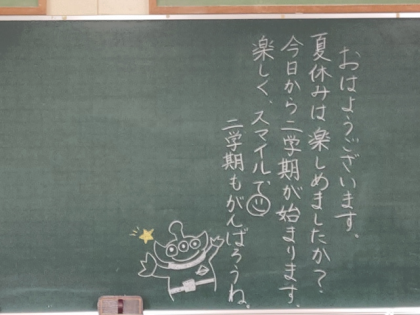 おはようございます。
夏休みは楽しめましたか?
今日から二学期が始まります。
楽しく、スマイルで
二学期もがんばろうね。